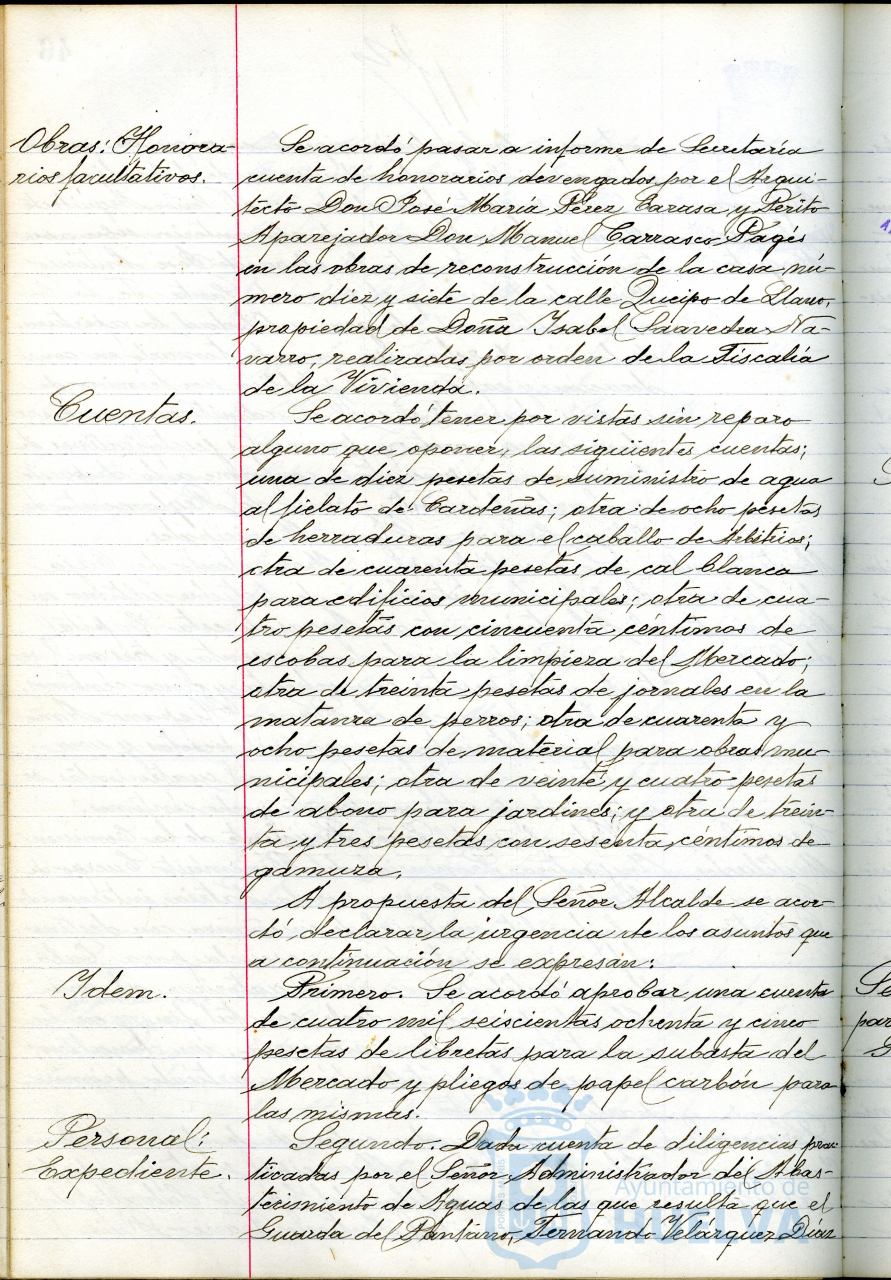 Obras: Honora-
rios facultativos.
Se acordó pasar a informe de Secretaría
cuenta de honorarios devengados por el Arqui-
tecto Don José María Pérez Carasa y Perito
Aparejador Don Manuel Carrasco Pagés
en las obras de reconstrucción de la casa nú-
mero diez y siete de la calle Queipo de Llano,
propiedad de Doña Isabel Saavedra Na-
varro, realizadas por orden de la Fiscalía
de la Vivienda.
Cuentas.
Se acordó tener por vistas sin reparo
alguno que oponer, las siguientes cuentas;
una de diez pesetas de suministro de agua
al fielato de Cardeñas; otra de ocho pesetas
de herraduras para el caballo de Arbitrios;
otra de cuarenta pesetas de cal blanca
para edificios municipales; otra de cua-
tro pesetas con cincuenta céntimos de
escobas para la limpieza del Mercado;
otra de treinta pesetas de jornales en la
matanza de perros; otra de cuarenta y
ocho pesetas de material para obras mu-
nicipales; otra de veinte y cuatro pesetas
de abono para jardines; y otra de trein-
ta y tres pesetas con sesenta céntimos de
gamuza.
A propuesta del Señor Alcalde se acor-
dó, declarar la urgencia de los asuntos que
a continuación se expresan:
Idem.
Primero. Se acordó aprobar una cuenta
de cuatro mil seiscientas ochenta y cinco
pesetas de libretas para la subasta del
Mercado y pliegos de papel carbón para
las mismas.
Personal:
Expediente.
Segundo. Dada cuenta de diligencias prac-
ticadas por el Señor Administrador del Abas-
tecimiento de Aguas de las que resulta que el
Guarda del Pantano, Fernando Velázquez Díaz
Ayuntamiento de
HUELVA